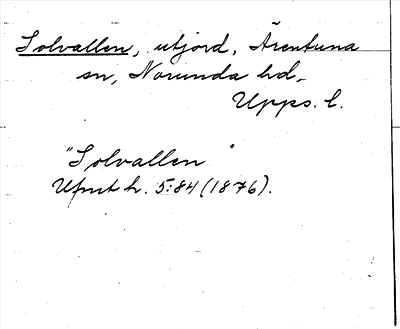 Solvallen, utjord, Ärentuna
sn, Norunda hd,
Upps. l.
"Solvallen"
Ufmt h. 5:84 (1876).